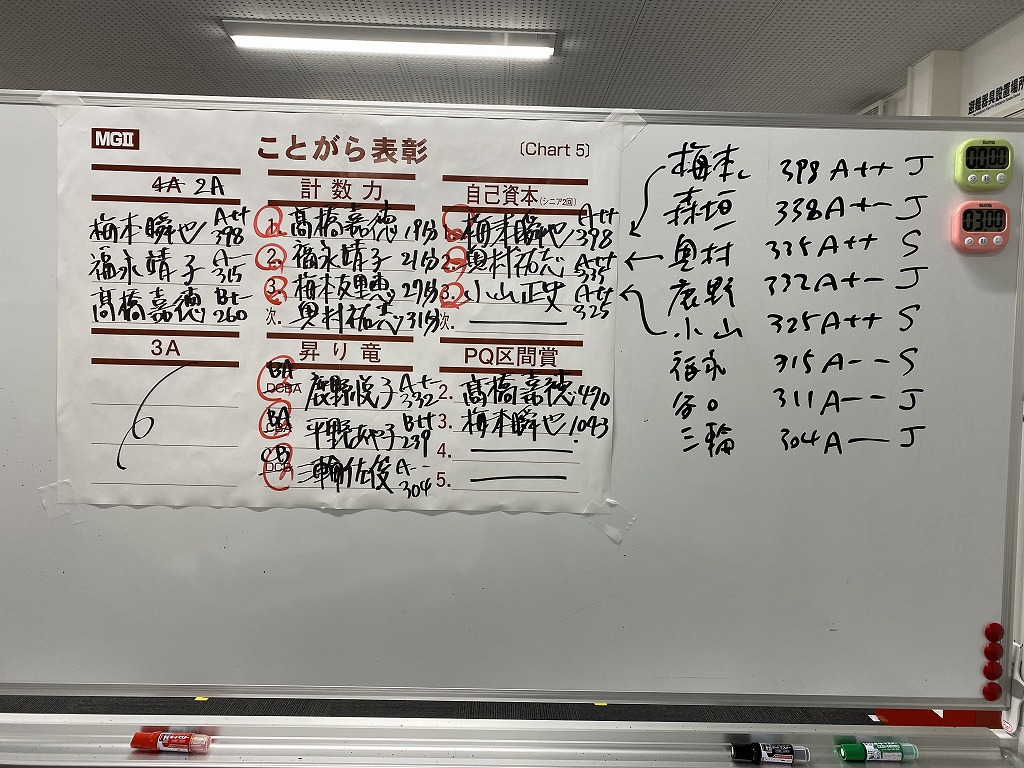 MGⅡ
ことがら表彰
〔Chart 5〕
4A 2A
梅本瞬也 A++ 398
福永靖子 A-- 315
髙橋嘉徳 B+- 260
3A
計数力
1. 髙橋嘉徳 19分
2. 福永靖子 21分
3. 梅本友里恵 27分
次. 奥村祐志 31分
昇り竜
BA
DCBA 鹿野悦子 A+- 332
BA
平野あや子 B++ 239
CB
DCB 三輪佐俊 A-- 304
自己資本(シニア2回)
1. 梅本瞬也 A++ 398
2. 奥村祐志 A++ 335
3. 小山正史 A++ 325
次.
PQ区間賞
2. 髙橋嘉徳 490
3. 梅本瞬也 1093
4.
5.
梅本し 398 A++ J
森垣 338 A+- J
奥村 335 A++ S
鹿野 332 A+- J
小山 325 A++ S
福永 315 A-- S
311 A-- J
三輪 304 A-- J
避難器具設置場所
TANITA
00:00
TANITA
03:00